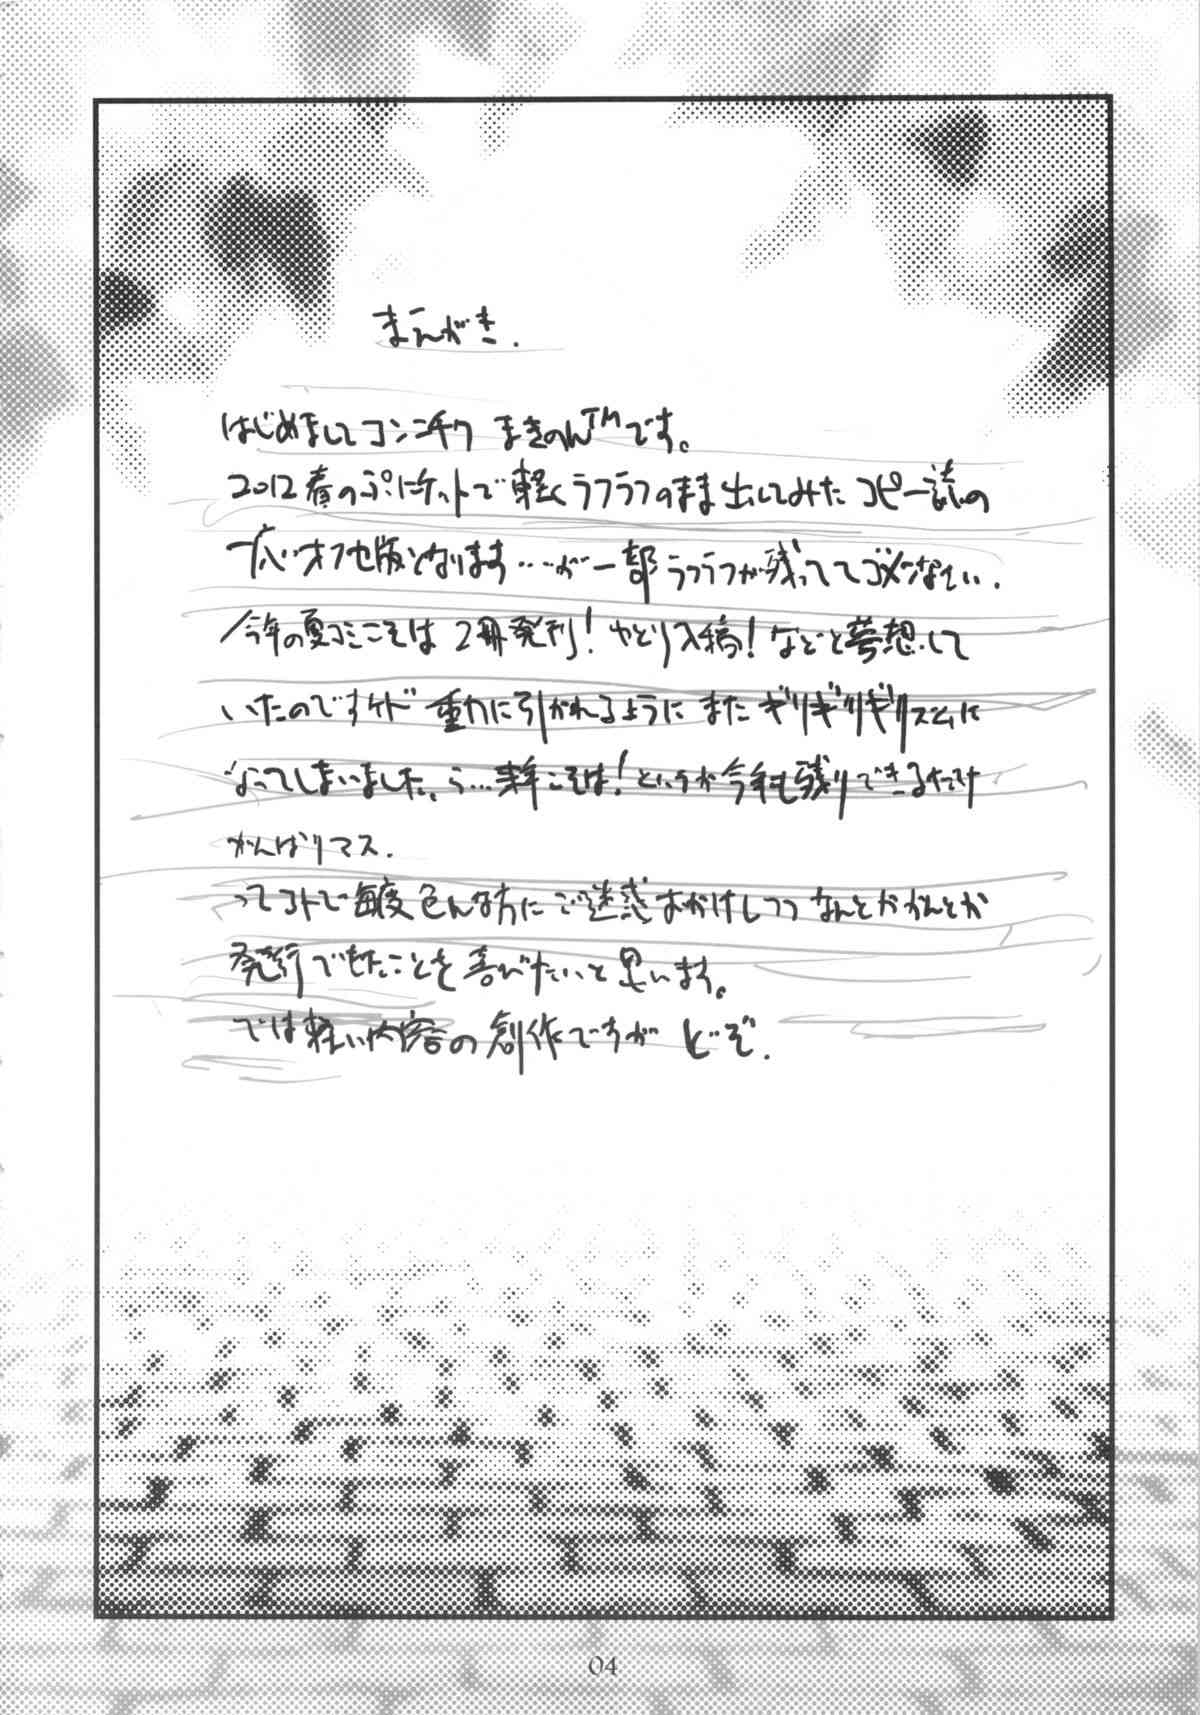 まえがき.
はじめましてコンニチワ まきのんTMです。
2012春のぷにケットで軽くラフラフのまま出してみたコピー誌の
オフセ版となります……が一部ラフラフが残っててゴメンなさい.
今年の夏コミこそは2冊発刊! やとり入稿! などと夢想して
いたのですケド 重力に引かれるように また ギリギリギリズムに
なってしまいました。ら…来年こそは! というか今年も残りできるだけ
がんばりマス.
ってコトで毎度色んな方に ご迷惑おかけしつつ なんとかかんとか
発行できたことを 喜びたいと思います。
では軽い内容の創作ですが どぞ.
04